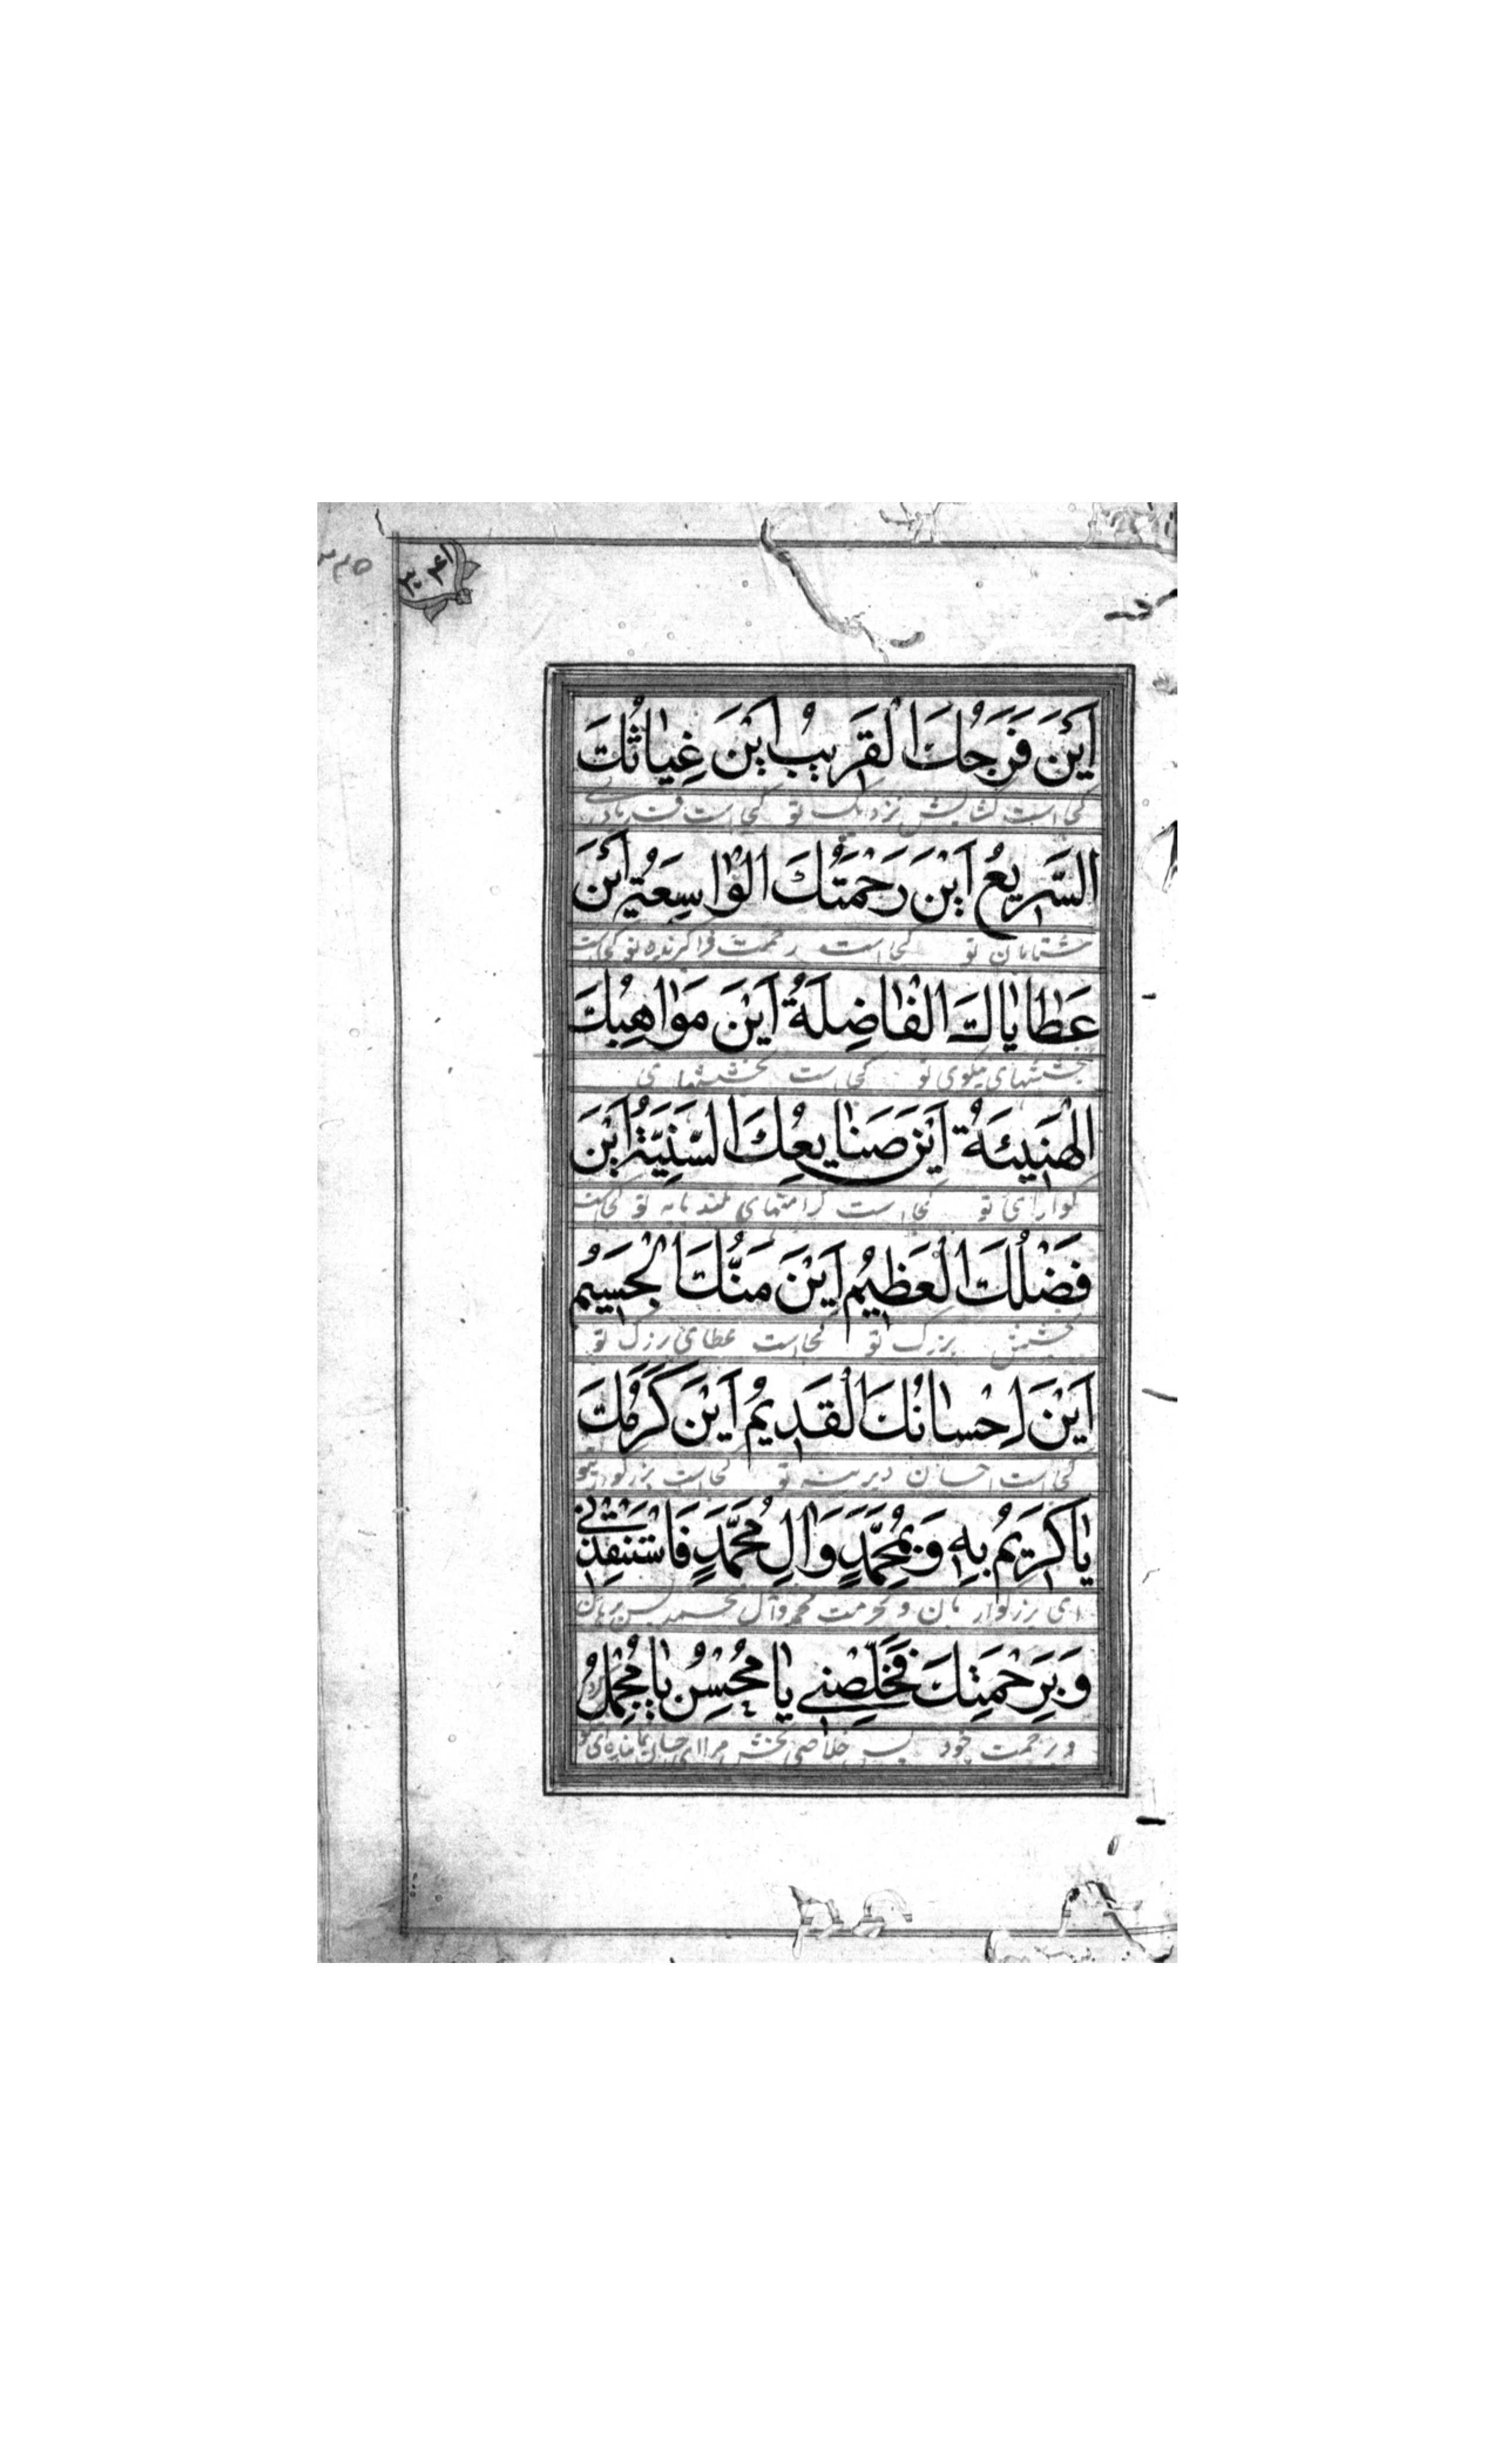 اَيْنَ فَرَجُكَ الْقَرِيبُ اَيْنَ غِيٰاثُكَ
كجاست كشايش نزديك تو كجاست فريادرسى
السَّرِيعُ اَيْنَ رَحْمَتُكَ الْوٰاسِعَةُ اَيْنَ
شتابان تو كجاست رحمت فراگيرنده تو كجاست
عَطٰايٰاكَ الْفٰاضِلَةُ اَيْنَ مَوٰاهِبُكَ
بخششهاى نيكوى تو كجاست بخششهاى
الْهَنِيئَةُ اَيْنَ صَنٰايِعُكَ السَّنِيَّةُ اَيْنَ
گواراى تو كجاست كرامتهاى بلند پايه تو كجاست
فَضْلُكَ الْعَظِيمُ اَيْنَ مَنُّكَ الْجَسِيمُ
بخشش بزرگ تو كجاست عطاى بزرگ تو
اَيْنَ اِحْسٰانُكَ الْقَدِيمُ اَيْنَ كَرَمُكَ
كجاست احسان ديرينه تو كجاست
يٰا كَرِيمُ بِهِ وَ بِمُحَمَّدٍ وَاٰلِ مُحَمَّدٍ فَاسْتَنْقِذْنِى
اى بزرگوار بآن و بحرمت محمد و آل محمد پس برهان
وَ بِرَحْمَتِكَ فَخَلِّصْنِى يٰا مُحْسِنُ يٰا مُجْمِلُ
و برحمت خود پس خلاصى بخش مرا اى